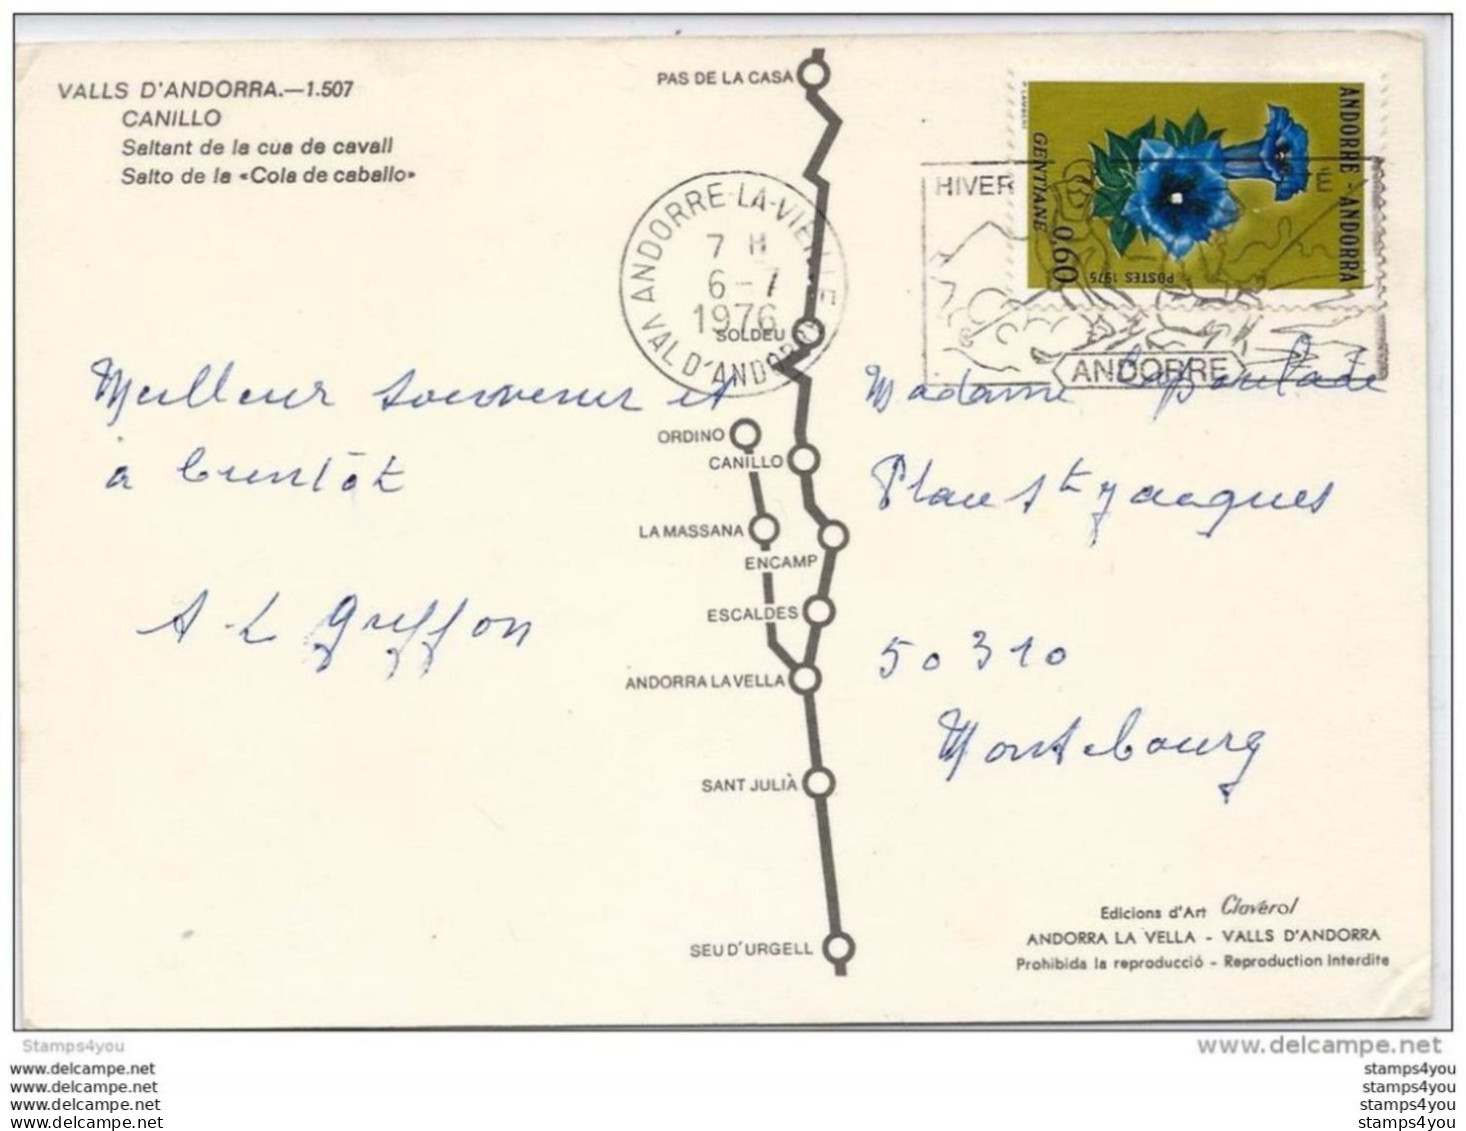 VALLS D'ANDORRA.—1.507
CANILLO
Saltant de la cua de cavall
Salto de la «Cola de caballo»
PAS DE LA CASA
SOLDEU
ORDINO
CANILLO
LA MASSANA
ENCAMP
ESCALDES
ANDORRA LA VELLA
SANT JULIÀ
SEU D'URGELL
ANDORRE-LA-VIEILLE
7 H
6-7
1976
VAL D'ANDORRE
HIVER
ÉTÉ
ANDORRE
ANDORRE - ANDORRA
GENTIANE
0,60
POSTES 1975
P. LAMBERT
Meilleur souvenir et
a bientôt
A L Griffon
Madame
Place St Jacques
50310
Montebourg
Edicions d'Art Claverol
ANDORRA LA VELLA - VALLS D'ANDORRA
Prohibida la reproducció - Reproduction Interdite
Stamps4you
www.delcampe.net
www.delcampe.net
www.delcampe.net
www.delcampe.net
www.delcampe.net
stamps4you
stamps4you
stamps4you
stamps4you